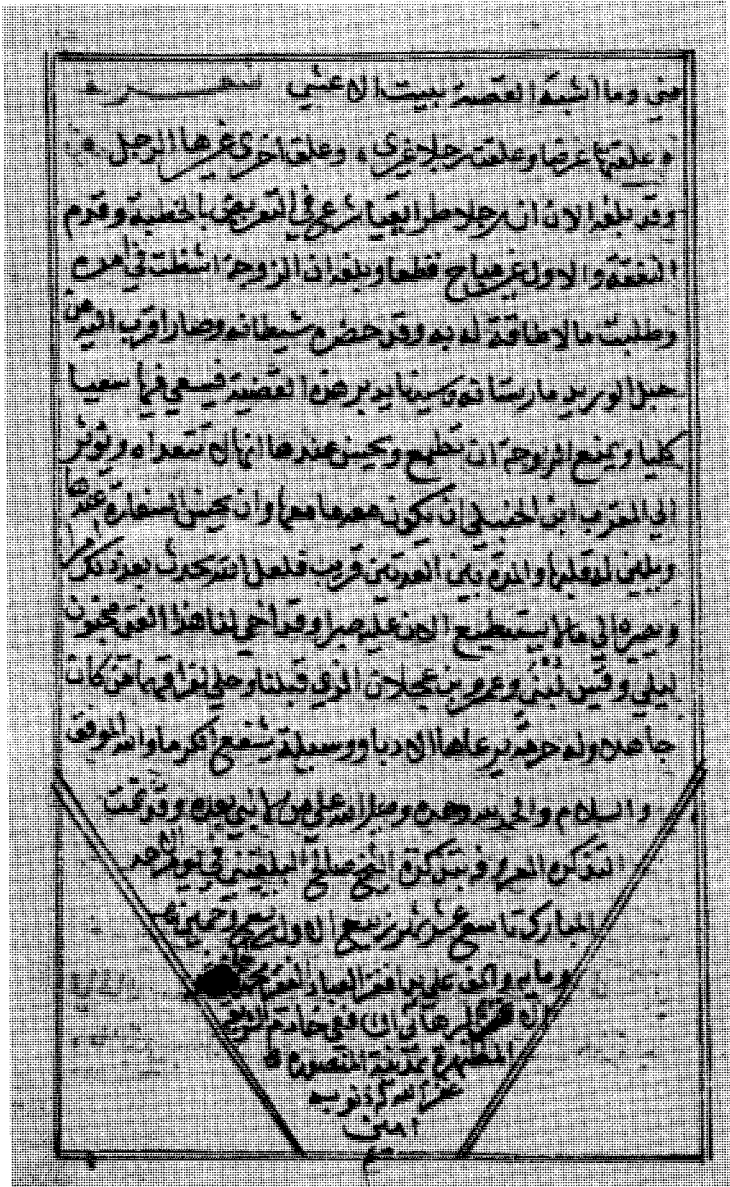 مني وما اشبه القصة ببيت الاعشي شعر
علقتها عرضا وعلقت رجلا غيري وعلق اخري غيرها الرجل
وقد بلغه الان ان رجلا طرايقيا شرع في التعريض بالخطبة وقدم
النفقة والاول غير مباح قطعا وبلغه ان الزوجة اشطت في امره
وطلبت مالا طاقة له به وقد حضره شيطانه وصار اقرب اليه من
حبل الوريد مارستانه وسيدنا يدبر هذه القضية فيسعي فيها سعيا
كليا ويمنع الزوجة ان تطمع ويحسن عندها انها لا تتعداه ويؤثر
الي المقرب ابن الحنبلي ان يكون معه ما معها وان يحسن السفارة عندها
ويلين له قلبها والمدة بين العدتين قريب فلعل الله يحدث بعد ذلك امرا
ويصيره الي ما لم يستطيع الان عليه صبرا وقد احيي لنا هذا الفتي مجنون
ليلي وقيس لبني وعمرو بن عجلان الذي قبلنا وحلي لفراقها من كان
جاهلا وله حرمة يرعاها الادبا ووسيلة يشفع الكرما والله الموفق
والسلام والحمد لله وحده وصلي الله علي من لا نبي بعده وقد تمت
التذكره المعروف بتذكرة الشيخ صالح البلقيني في يوم الاحد
المبارك تاسع عشر شهر ربيع الاول سبع وخمسين
ومايه والف علي يد افقر العباد
خادم
المطهرة بمدينة المنصوره
غفر الله له ذنوبه
امين